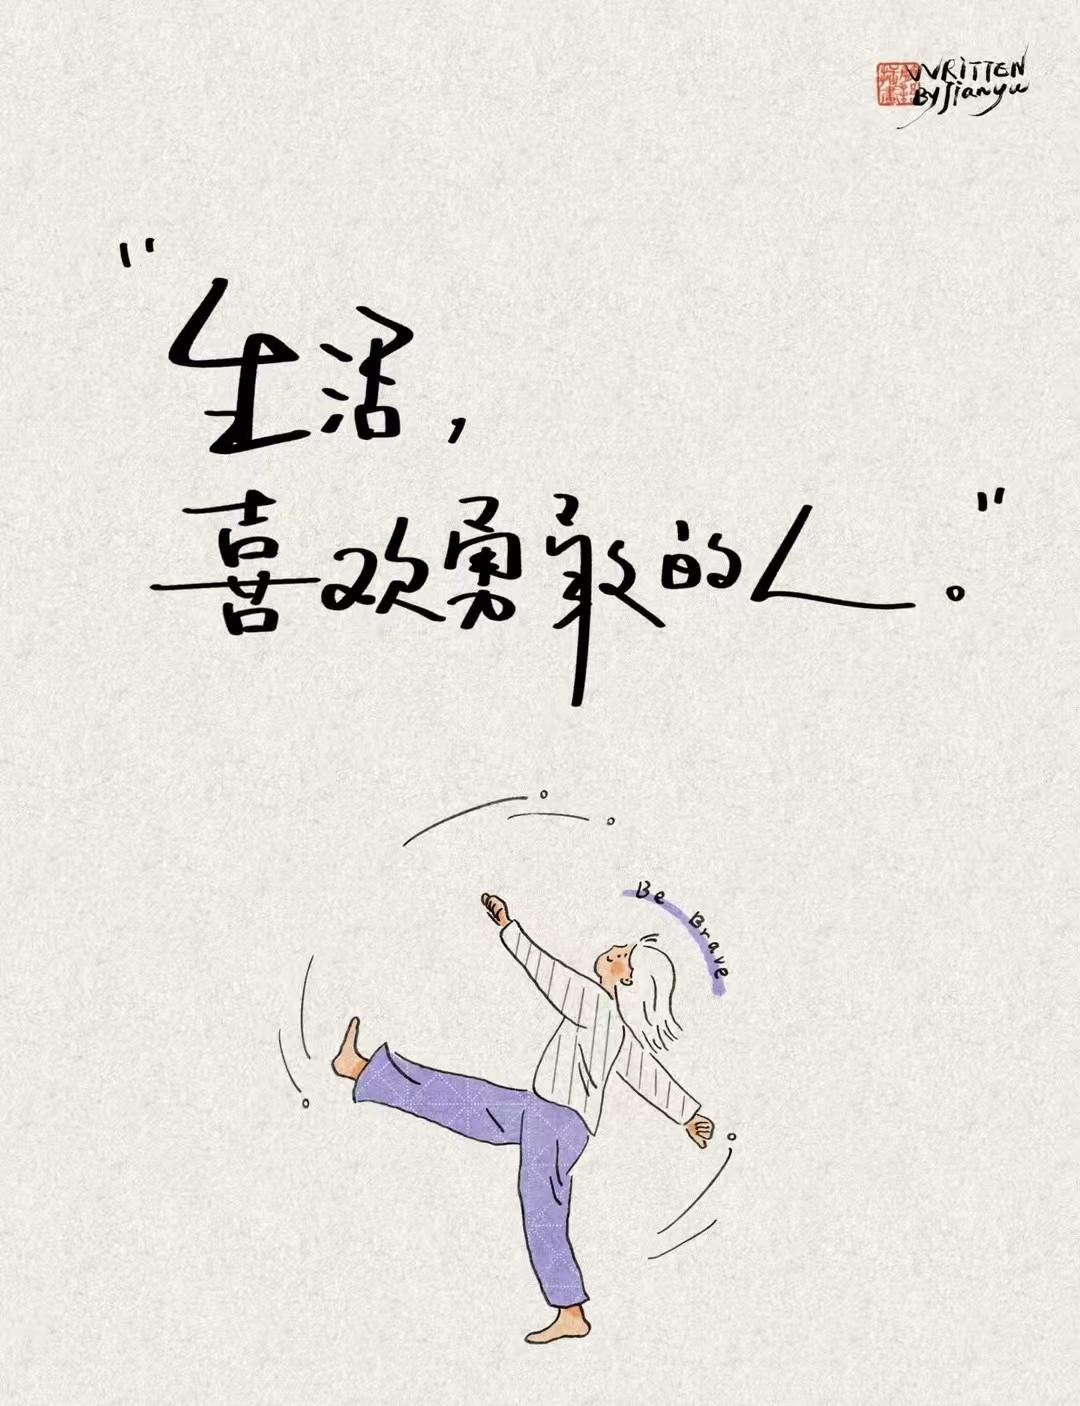 WRITTEN
BY Jianyu
"生活,
喜欢勇敢的人。"
Be Brave